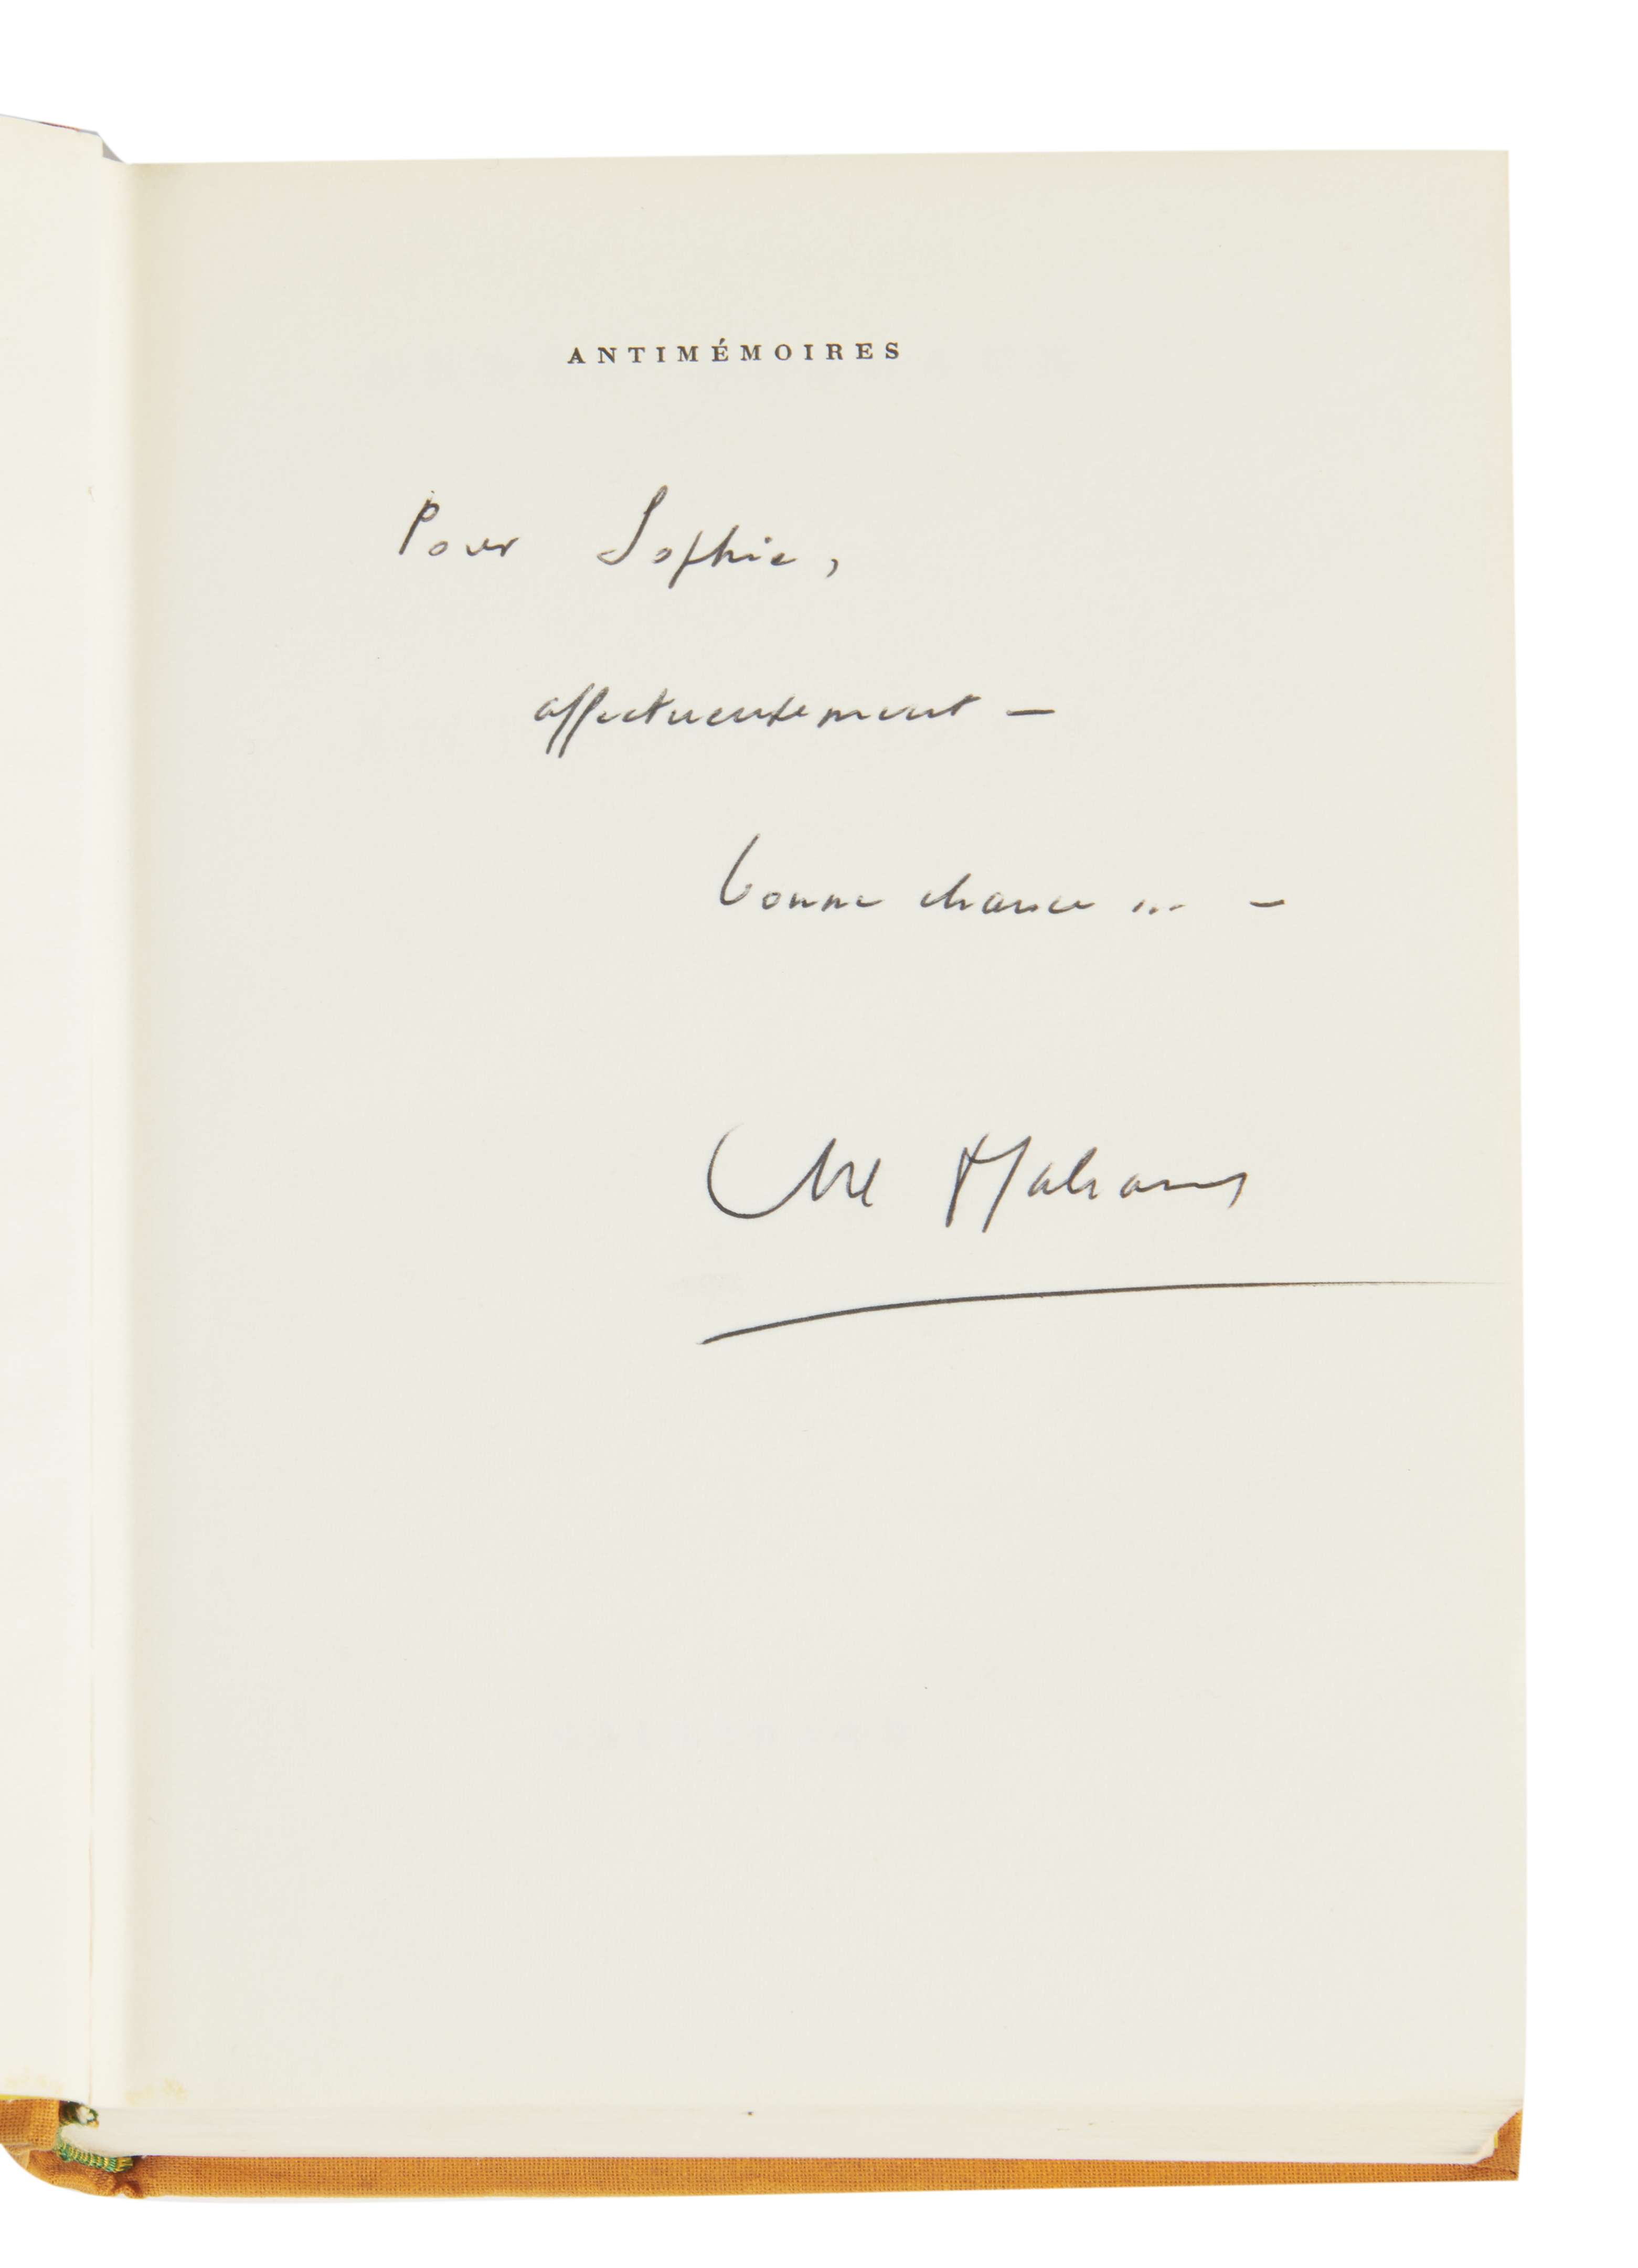 ANTIMÉMOIRES
Pour Sophie,
affectueusement —
bonne chance ... —
André Malraux